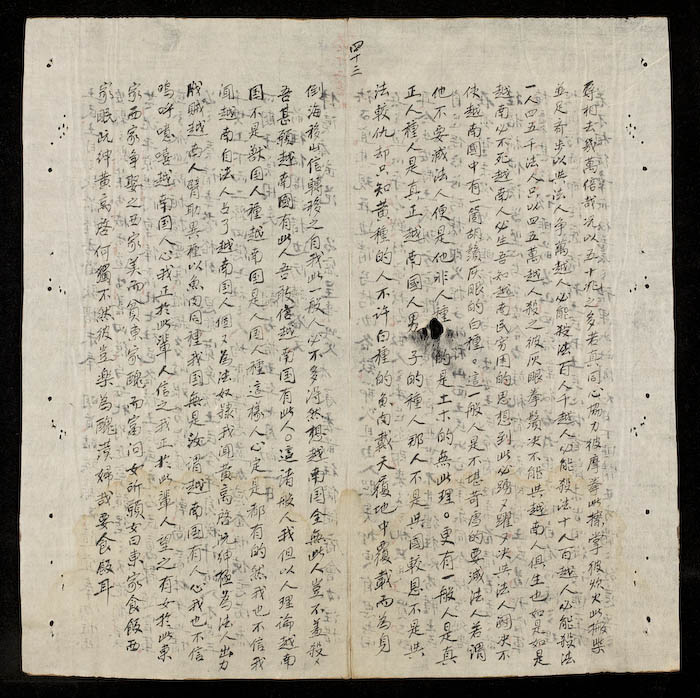 四十三
尋相去幾萬倍哉況以五十兆之多者真同心協力彼摩拳此擦掌彼放火此搬柴
並足齊步以與法人爭萬越人必能殺法百人千越人必能殺法十人百越人必能殺法
一人四五千法人只以四五萬越人殺之彼灰眼拳鬚決不能與越南人俱生也如是如是
越南必不死越南人必生吾知越南民窮困的思想到此必踴〻躍〻決與法人鬪決不
使越南國中有一箇胡鬚灰眼的白種。這一般人是不堪苛虐的要滅法人若謂
他不要滅法人便是他非人種的是土木的無此理。更有一般人是真
正人種人是真正越南國人男子的種人那人不是與國較恩不是與
法較仇却只知黃種的人不許白種的魚肉戴天履地中覆載而為身
倒海移山信轉移之有我此一般人必不多得然想越南国全無此人豈不羞殺〻
吾甚願越南國有此人吾敢信越南国有此人。這諸般人我但以人理論越南
国不是獸国人種越南国是人国人種這樣人心定是都有的然我也不信我
聞越南自法人占了越南国人個〻為法奴隸我聞黃高啓阮紳極為法人出力
戕賊越南人臂助異種以魚肉同種我国無是汝謂越南国有人心我也不信
嗚呼噫嘻越南国人心我正於此輩人信之我正於此輩人望之有女於此東
家西家爭娶之西家美而貧東家醜而富問女所願女曰東家食飯西
家眠阮紳黃高啓何獨不然彼豈樂為醜漢婦哉要食飯耳